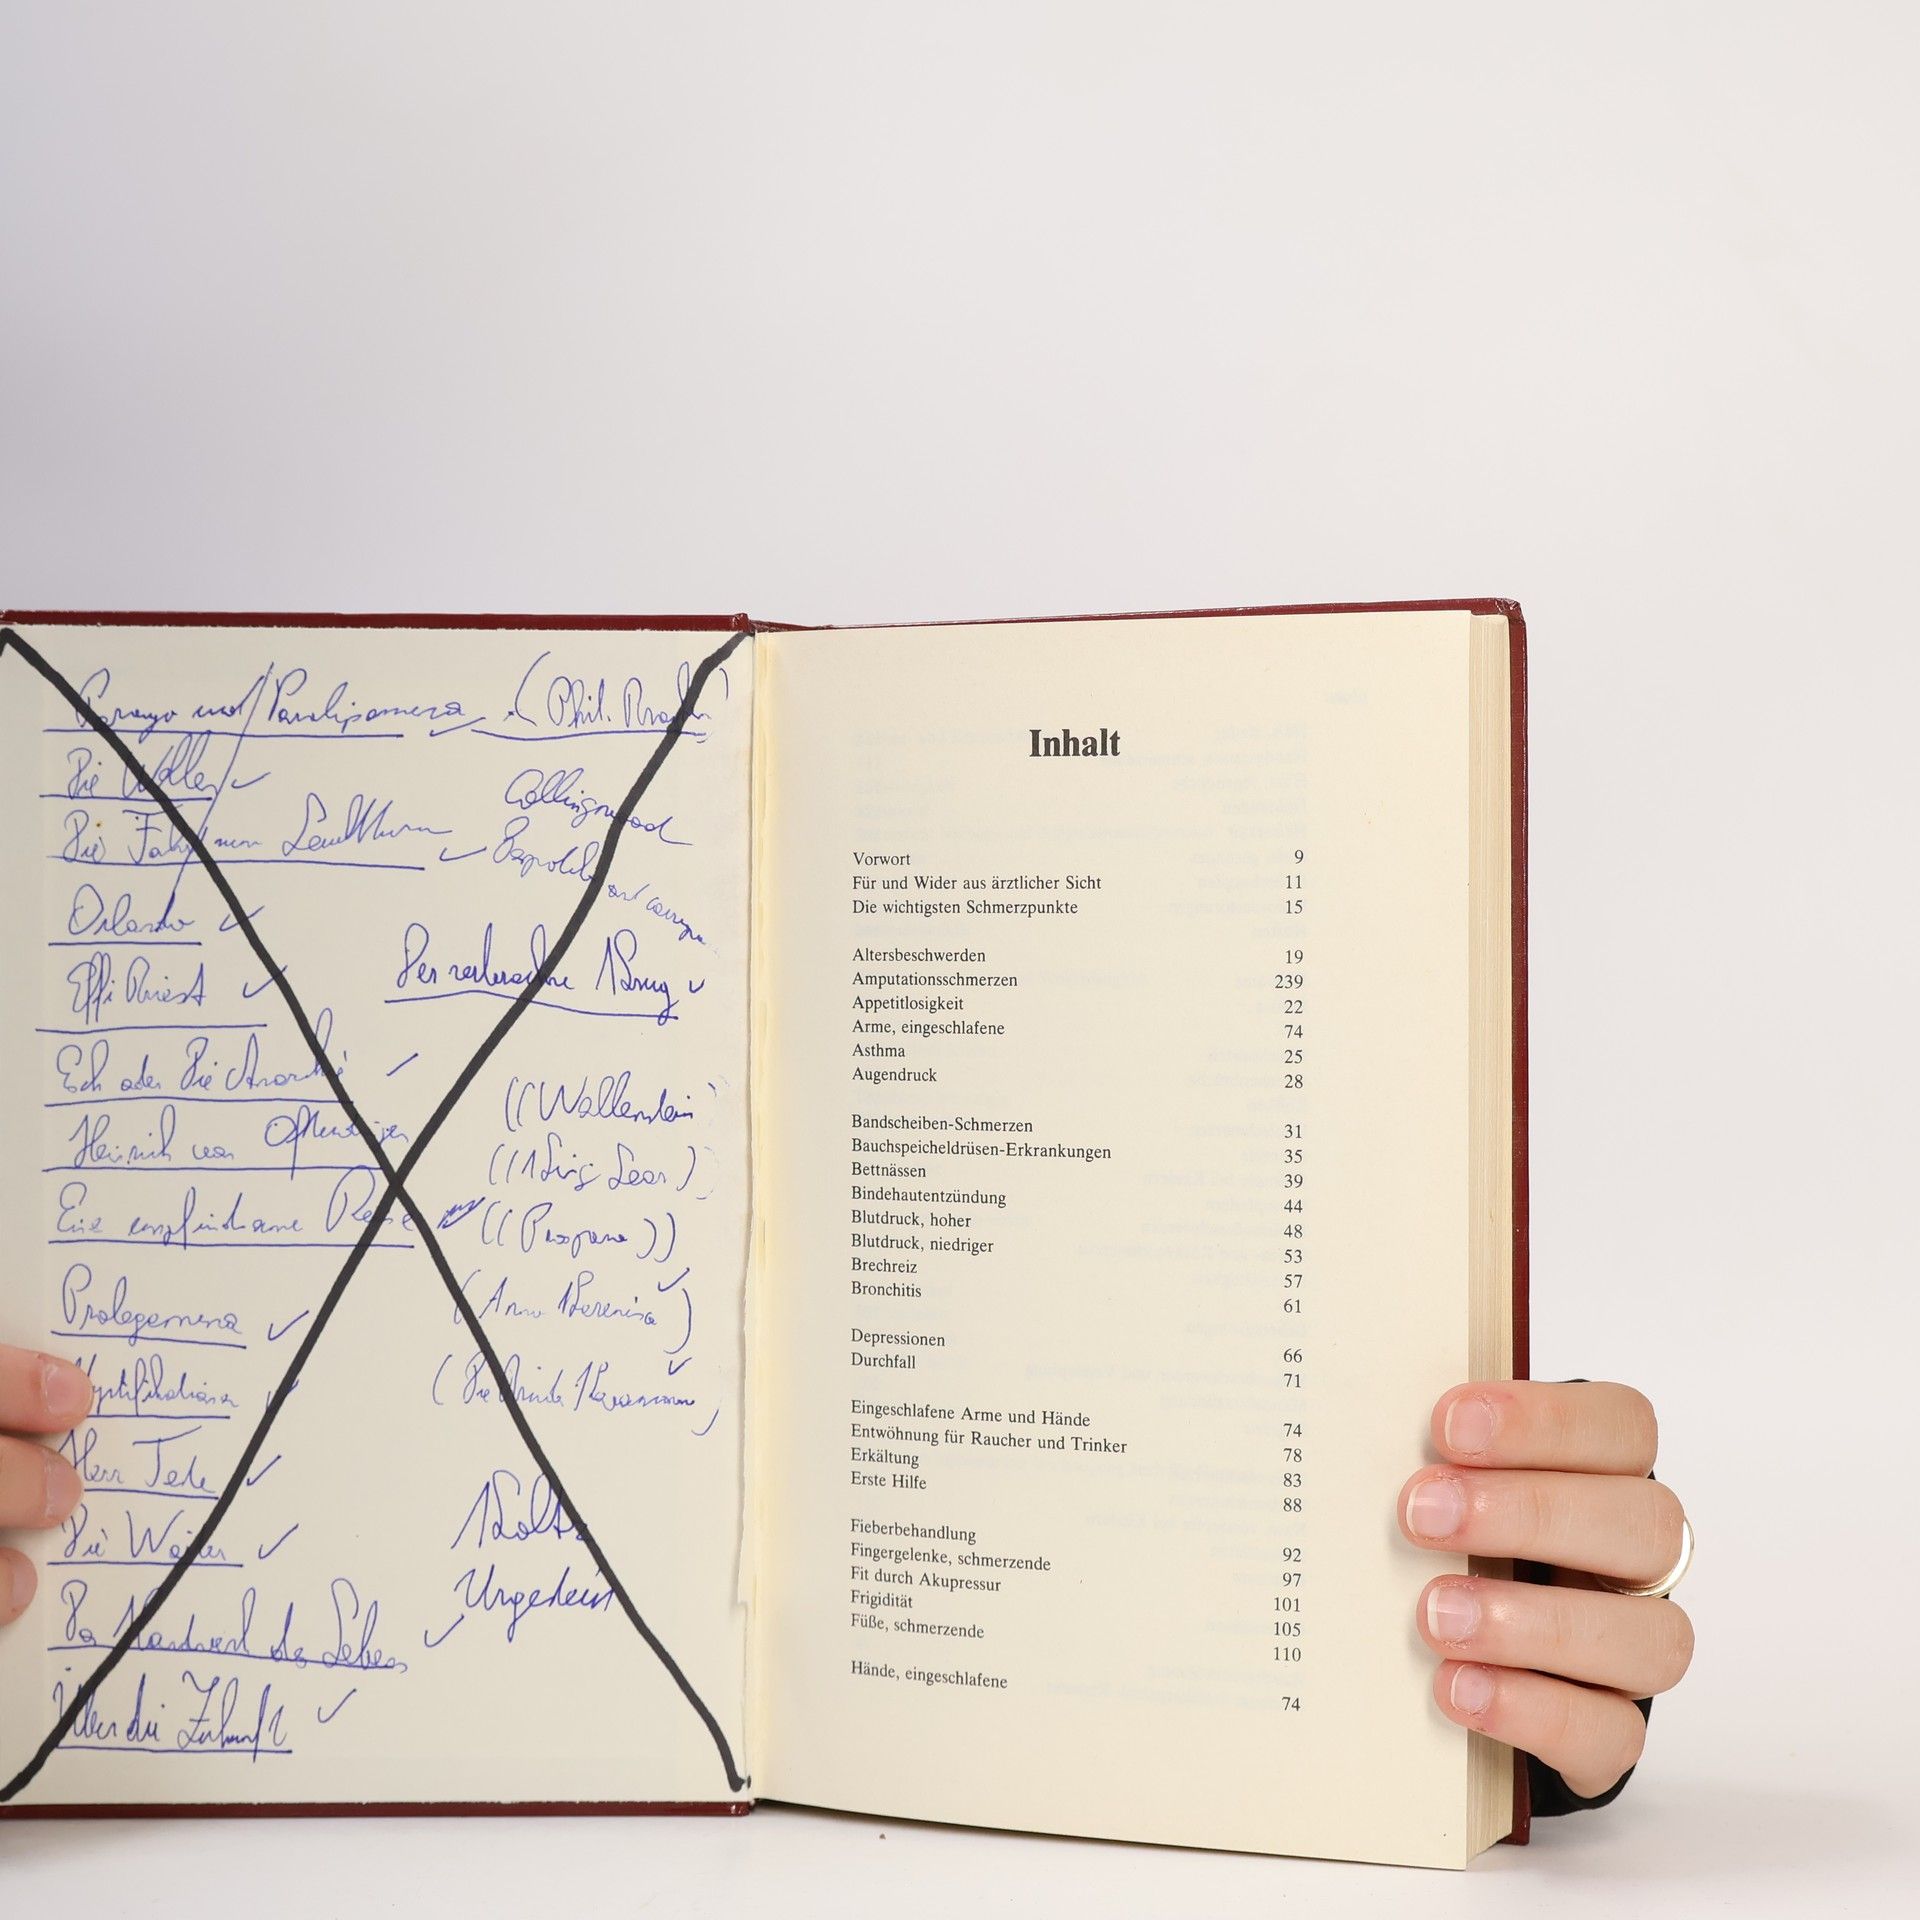 Parerga und Paralipomena (Phil. 
Die Wellen
Collingwood
Die Fahrt zum Leuchtturm
Orlando
Effi Briest
Der zerbrochne Krug
Esch oder Die Anarchie
((Wallenstein
Heinrich von Ofterdingen
((King Lear)
Eine empfindsame Reise
Prolegomena
(Anna Karenina)
Mystifikationen
Herr Teste
Die Wörter
Das Handwerk des Lebens
Über die Zukunft
Inhalt
Vorwort 9
Für und Wider aus ärztlicher Sicht 11
Die wichtigsten Schmerzpunkte 15
Altersbeschwerden 19
Amputationsschmerzen 239
Appetitlosigkeit 22
Arme, eingeschlafene 74
Asthma 25
Augendruck 28
Bandscheiben-Schmerzen 31
Bauchspeicheldrüsen-Erkrankungen 35
Bettnässen 39
Bindehautentzündung 44
Blutdruck, hoher 48
Blutdruck, niedriger 53
Brechreiz 57
Bronchitis 61
Depressionen 66
Durchfall 71
Eingeschlafene Arme und Hände 74
Entwöhnung für Raucher und Trinker 78
Erkältung 83
Erste Hilfe 88
Fieberbehandlung 92
Fingergelenke, schmerzende 97
Fit durch Akupressur 101
Frigidität 105
Füße, schmerzende 110
Hände, eingeschlafene 74